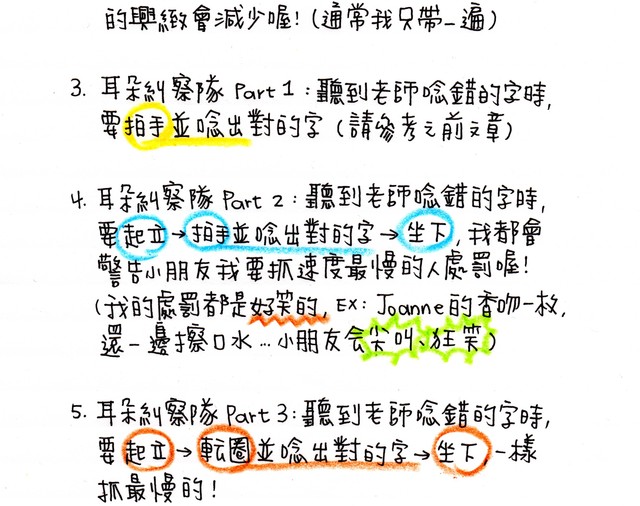 的興緻會減少喔!(通常我只帶一遍)
3. 耳朵糾察隊 Part 1:聽到老師唸錯的字時,
要拍手並唸出對的字(請參考之前文章)
4. 耳朵糾察隊 Part 2:聽到老師唸錯的字時,
要起立→拍手並唸出對的字→坐下,我都會
警告小朋友我要抓速度最慢的人處罰喔!
(我的處罰都是好笑的,EX: Joanne的香吻一枚,
還一邊擦口水...小朋友會尖叫、狂笑)
5. 耳朵糾察隊 Part 3:聽到老師唸錯的字時,
要起立→転圈並唸出對的字→坐下,一樣
抓最慢的!